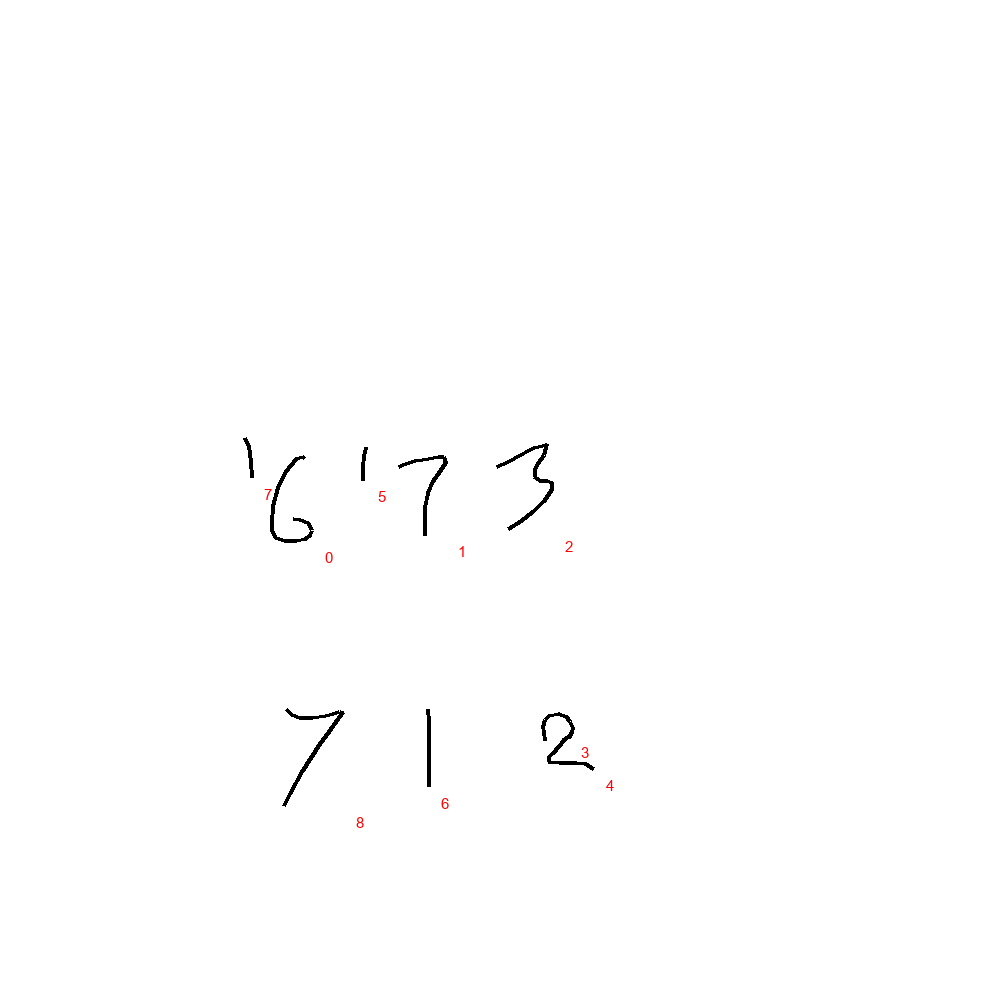 '6'73
7 5
0 1 2
712
3
4
6
8